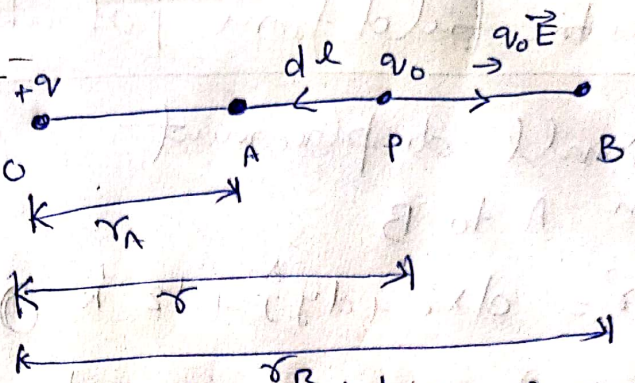 +q dl q₀ → q₀E⃗
O A P B
r_A
r
r_B